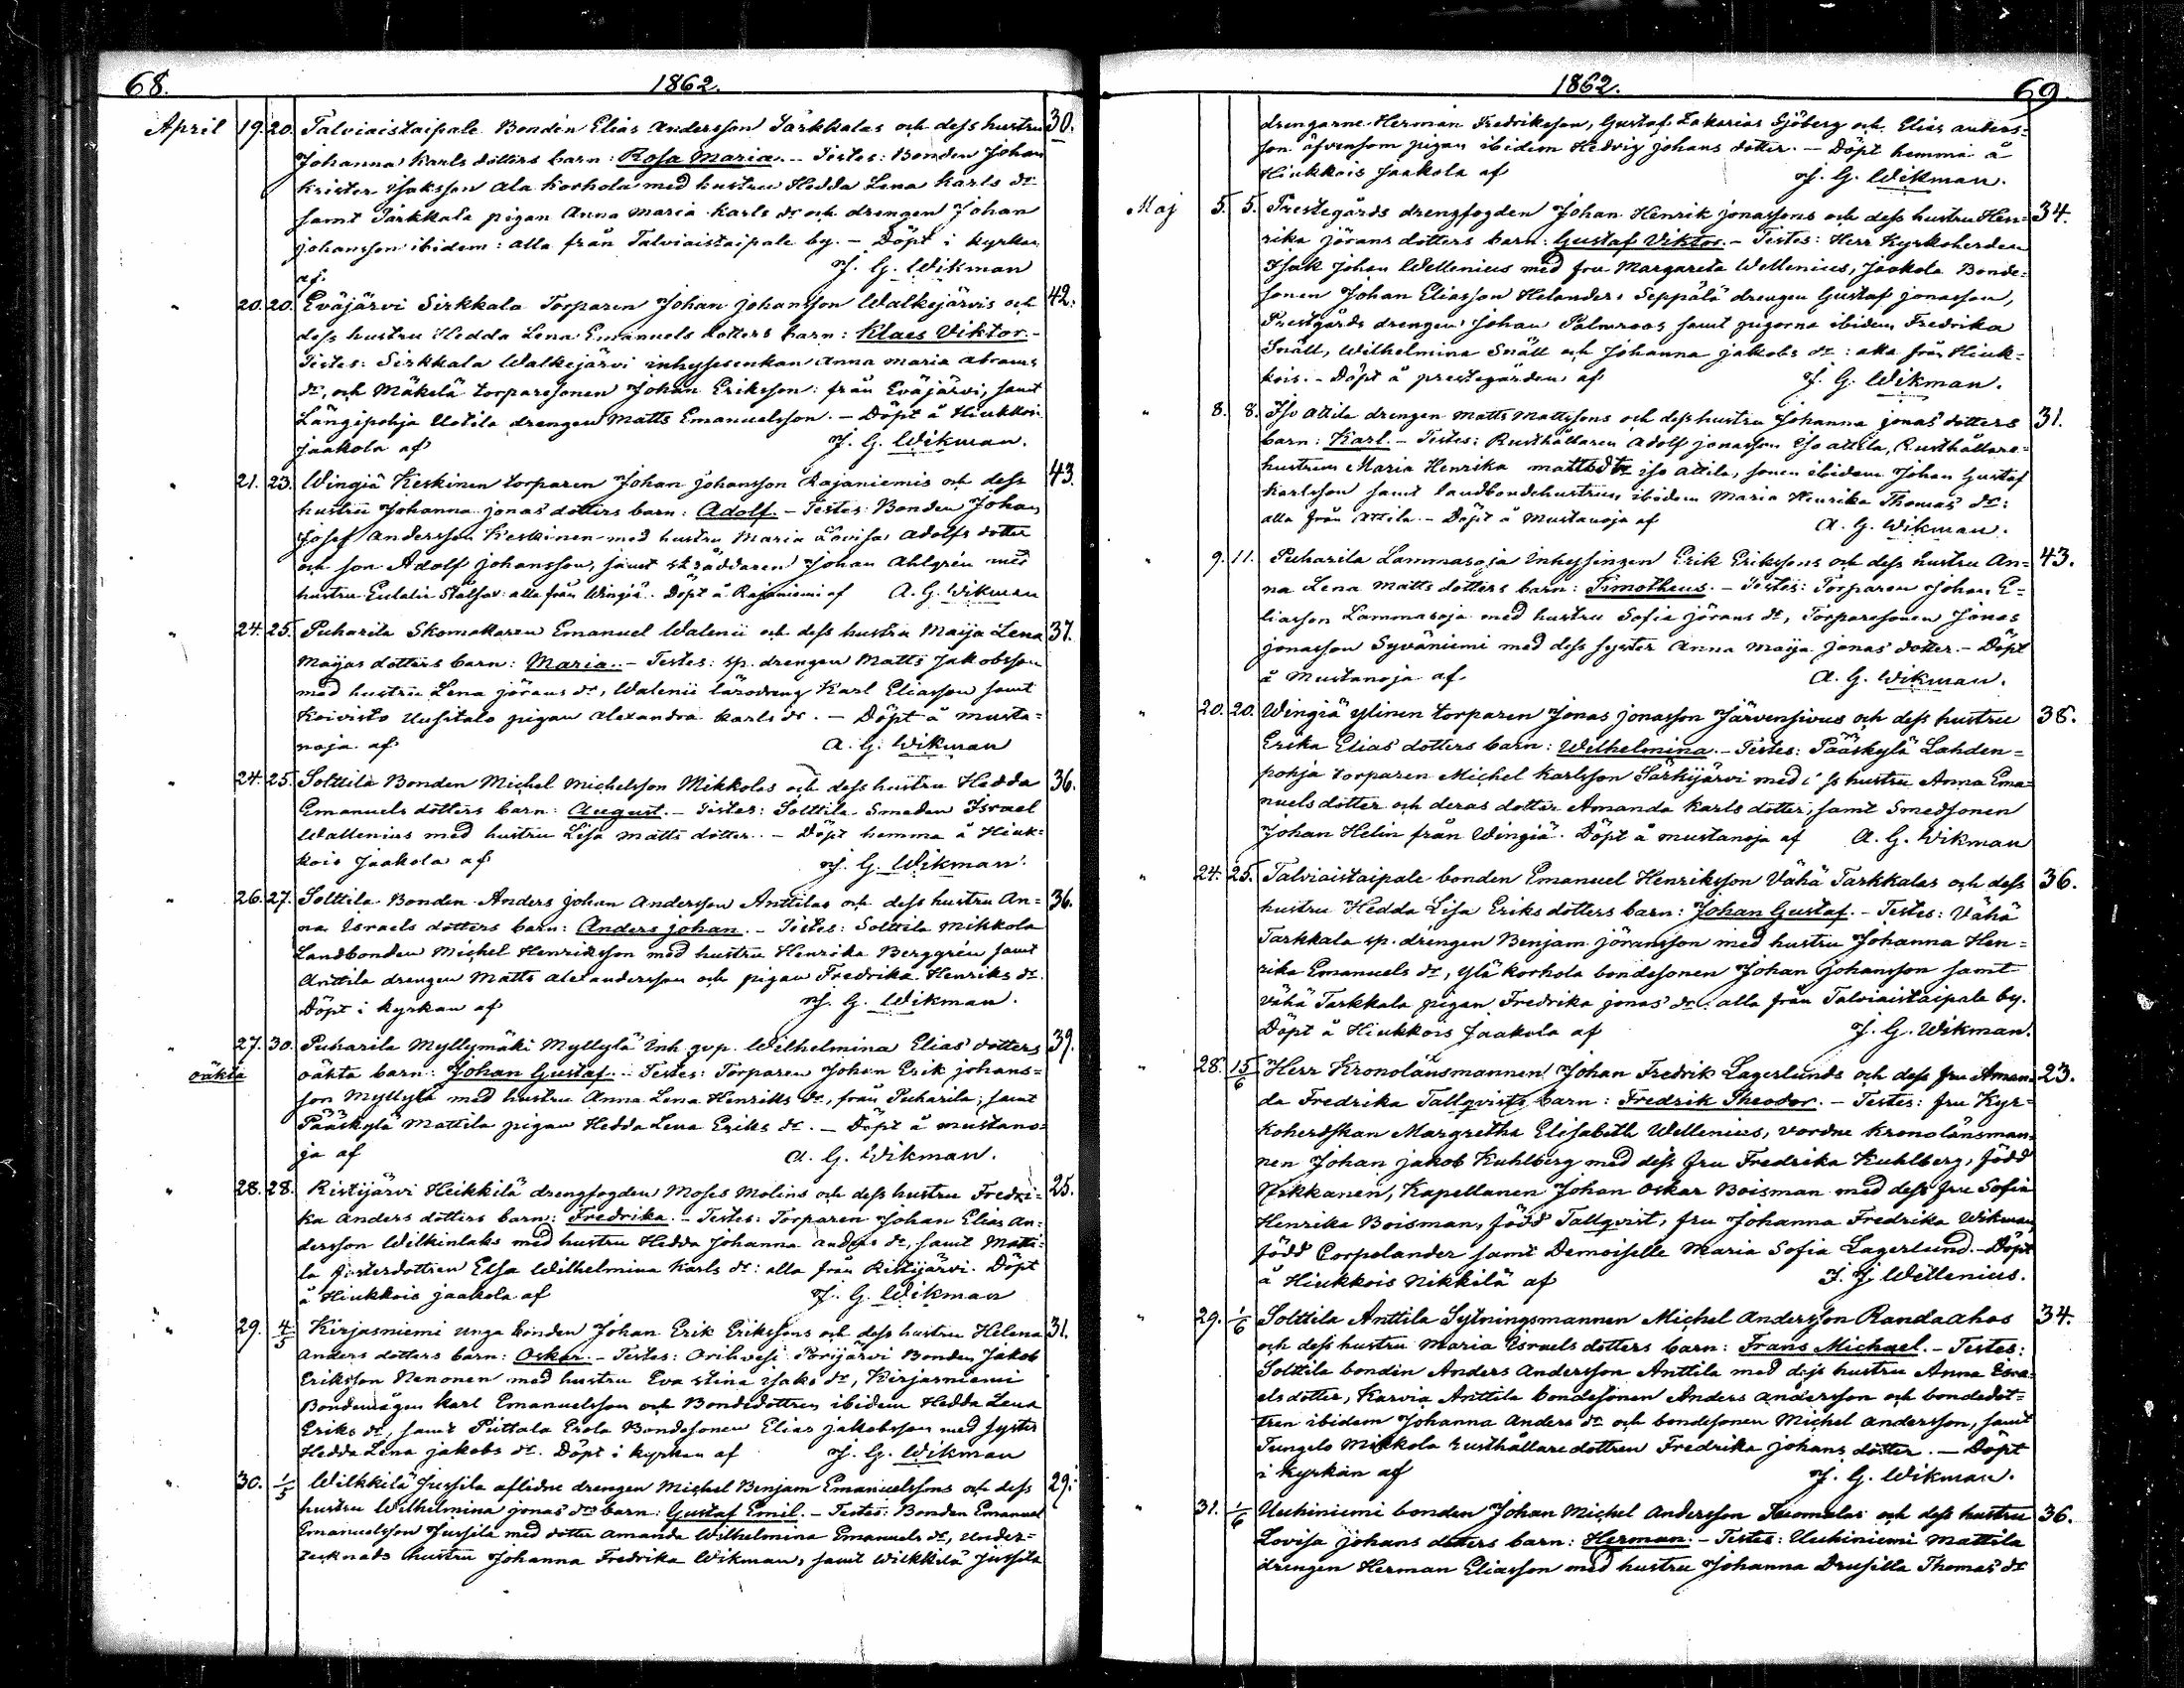 68. 1862.
April 19. 20. Talviaistaipale Bonden Elias Andersson Tarkkalas och dess hustru 30.
Johanna Karls dotters barn: Rosa Maria. - Testes: Bonden Johan
Krister Isaksson Ala Korhola med hustru Hedda Lena Karls dr
samt Tarkkala pigan Anna Maria Karls dr och drengen Johan
Johansson ibidem: alla från Talviaistaipale by. - Döpt i kyrkan
af J. G. Wikman
" 20. 20. Eväjärvi Sirkkala Torparen Johan Johansson Walkejärvis och 42.
dess hustru Hedda Lena Emanuels dotters barn: Klaes Viktor. -
Testes: Sirkkala Walkejärvi inhysesenkan Anna Maria Abrams
dr, och Mäkelä torparesonen Johan Eriksson: från Eväjärvi, samt
Längipohja Uotila drengen Matts Emanuelsson. - Döpt å Hiukkois
Jaakola af J. G. Wikman.
" 21. 23. Wingiä Keskinen torparen Johan Johansson Rajaniemis och dess 43.
hustru Johanna Jonas dotters barn: Adolf. - Testes: Bonden Johan
Josef Andersson Keskinen med hustru Maria Lovisa Adolfs dotter
och son Adolf Johansson, samt skräddaren Johan Ahlgrén med
hustru Eulalia : alla från Wingiä. Döpt å Rajaniemi af A. G. Wikman
" 24. 25. Puharila Skomakaren Emanuel Walenii och dess hustru Maija Lena 37.
Maijas dotters barn: Maria. - Testes: sp. drengen Matts Jakobsson
med hustru Lena Jörans dr, Walenii lärodreng Karl Eliasson samt
Koivisto Uusitalo pigan Alexandra Karls dr. - Döpt å Musta=
noja af A. G. Wikman
" 24. 25. Solttila Bonden Michel Michelsson Mikkolas och dess hustru Hedda 36.
Emanuels dotters barn: August. - Testes: Solttila Smeden Israel
Wallenius med hustru Lisa Matts dotter. - Döpt hemma å Hiuk=
kois Jaakola af J. G. Wikman.
" 26. 27. Solttila Bonden Anders Johan Andersson Anttilas och dess hustru An= 36.
na Israels dotters barn: Anders Johan. - Testes: Solttila Mikkola
Landbonden Michel Henriksson med hustru Henrika Berggrén samt
Anttila drengen Matts Alexandersson och pigan Fredrika Henriks dr.
Döpt i kyrkan af J. G. Wikman.
" 27. 30. Puharila Myllymäki Myllylä Inh. qvp. Wilhelmina Elias dotters 39.
oäkta oäkta barn: Johan Gustaf. - Testes: Torparen Johan Erik Johans=
son Myllylä med hustru Anna Lena Henriks dr, från Puharila; samt
Pääskylä Mattila pigan Hedda Lena Eriks dr. - Döpt å Mustano=
ja af A. G. Wikman.
" 28. 28. Ristijärvi Heikkilä drengfogden Moses Molins och dess hustru Fredri= 25.
ka Anders dotters barn: Fredrika. - Testes: Torparen Johan Elias An=
dersson Wilkinlaks med hustru Hedda Johanna Anders dr, samt Matti=
la dottren Elsa Wilhelmina Karls dr: alla från Ristijärvi. Döpt
å Hiukkois Jaakola af J. G. Wikman
" 29. 4/5 Kirjasniemi unga bonden Johan Erik Erikssons och dess hustru Helena 31.
Anders dotters barn: Oskar. - Testes: Orihvesi Bonden Jakob
Eriksson Nenonen med hustru Eva Stina Isaks dr, Kirjasniemi
Bondemågen Karl Emanuelsson och Bondedottren ibidem Hedda Lena
Eriks dr, samt Puttala Erola Bondesonen Elias Jakobsson med syster
Hedda Lena Jakobs dr. Döpt i kyrkan af J. G. Wikman
" 30. 1/5 Wilkkilä Jussila aflidne drengen Michel Benjam Emanuelssons och dess 29.
hustru Wilhelmina Jonas drs barn: Gustaf Emil. - Testes: Bonden Emanuel
Emanuelsson Jussila med dotter Amanda Wilhelmina Emanuels dr, under=
tecknads hustru Johanna Fredrika Wikman, samt Wilkkilä Jussila
1862. 69.
drengarne Herman Fredriksson, Gustaf Zakarias Sjöberg och Elias Anders=
son äfvensom pigan ibidem Hedvig Johans dotter. - Döpt hemma å
Hiukkois Jaakola af J. G. Wikman.
Maj 5. 5. Prestegårds drengfogden Johan Henrik Jonassons och dess hustru Hen= 34.
rika Jörans dotters barn: Gustaf Viktor. - Testes: Herr Kyrkoherden
Isak Johan Wellenius med fru Margareta Wellenius, Jaakola Bonde=
sonen Johan Eliasson Helander, Seppälä drengen Gustaf Jonasson,
Prestgårds drengen Johan Palmroos samt pigorna ibidem Fredrika
Snäll, Wilhelmina Snäll och Johanna Jakobs dr: alla från Hiuk=
kois. - Döpt å prestegården af J. G. Wikman.
" 8. 8. Iso Attila drengen Matts Mattssons och dess hustru Johanna Jonas dotters 31.
barn: Karl. - Testes: Rusthållaren Adolf Jonasson Iso Attila, Rusthållare=
hustrun Maria Henrika Matts dr Iso Attila, sonen ibidem Johan Gustaf
Karlsson samt landbondehustrun ibidem Maria Henrika Thomas dr:
alla från Attila. - Döpt å Mustanoja af A. G. Wikman.
" 9. 11. Puharila Lammasoja Inhysingen Erik Erikssons och dess hustru An= 43.
na Lena Matts dotters barn: Timotheus. - Testes: Torparen Johan E=
liasson Lammasoja med hustru Sofia Jörans dr, Torparesonen Jonas
Jonasson Syväniemi med dess syster Anna Maija Jonas dotter. - Döpt
å Mustanoja af A. G. Wikman.
" 20. 20. Wingiä Ylinen torparen Jonas Jonasson Järvensivus och dess hustru 38.
Erika Elias dotters barn: Wilhelmina. - Testes: Pääskylä Lahden=
pohja torparen Michel Karlsson Särkijärvi med dess hustru Anna Ema=
nuels dotter och deras dotter Amanda Karls dotter, samt Smedsonen
Johan Helin från Wingiä. Döpt å Mustanoja af A. G. Wikman
" 24. 25. Talviaistaipale bonden Emanuel Henriksson Vähä Tarkkalas och dess 36.
hustru Hedda Lisa Eriks dotters barn: Johan Gustaf. - Testes: Vähä
Tarkkala sp. drengen Benjam Jöransson med hustru Johanna Hen=
rika Emanuels dr, Ylä Korhola bondesonen Johan Johansson samt
Vähä Tarkkala pigan Fredrika Jonas dr: alla från Talviaistaipale by.
Döpt å Hiukkois Jaakola af J. G. Wikman.
" 28. 15/6 Herr Kronolänsmannen Johan Fredrik Lagerlunds och dess fru Aman= 23.
da Fredrika Tallqvists barn: Fredrik Theodor. - Testes: fru Kyr=
koherdskan Margretha Elisabeth Wellenius, vordne Kronolänsman=
nen Johan Jakob Kuhlberg med dess fru Fredrika Kuhlberg, född
Kapellanen Johan Oskar Boisman med dess fru Sofia
Henrika Boisman, född Tallqvist, fru Johanna Fredrika Wikman
född Corpelander samt Demoiselle Maria Sofia Lagerlund. - Döpt
å Hiukkois Nikkilä af I. J. Wellenius.
" 29. 1/6 Solttila Anttila Sytningsmannen Michel Andersson Randaahos 34.
och dess hustru Maria Israels dotters barn: Frans Michael. - Testes:
Solttila bonden Anders Andersson Anttila med dess hustru Anna Isra=
els dotter, Karvia Anttila bondesonen Anders Andersson och bondedot=
tren ibidem Johanna Anders dr och bondesonen Michel Andersson, samt
Tungelo Mikkola Rusthållare dottren Fredrika Johans dotter. - Döpt
i kyrkan af J. G. Wikman.
" 31. 1/6 Uuhiniemi bonden Johan Michel Andersson Tuomolas och dess hustru 36.
Lovisa Johans dotters barn: Herman. - Testes: Uuhiniemi Mattila
drengen Herman Eliasson med hustru Johanna Drusilla Thomas dr